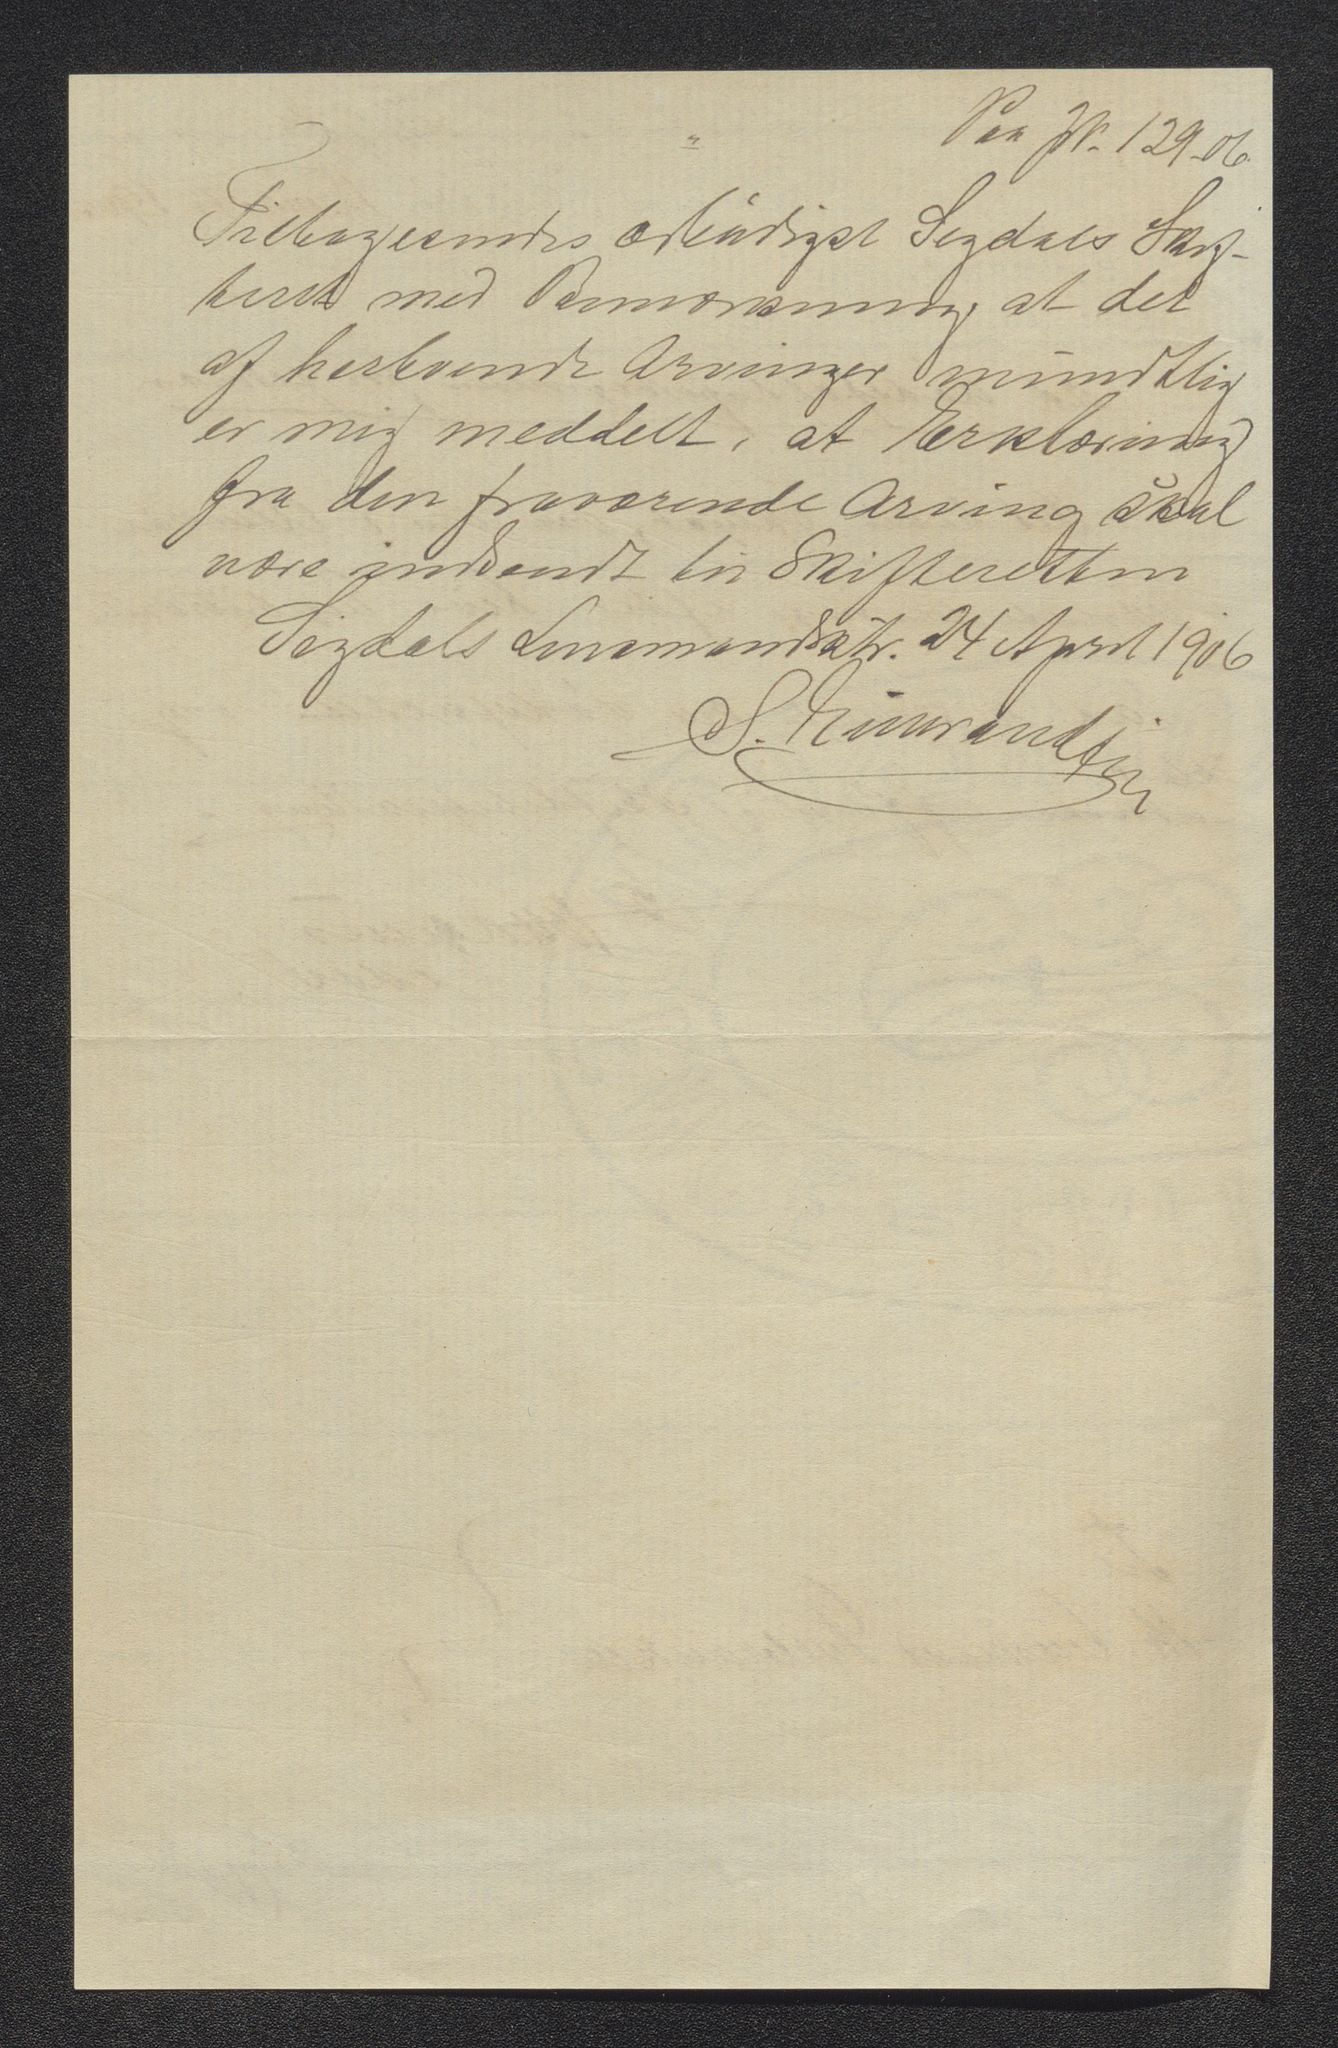 Paa J.N. 129-06.
Tilbagesendes ærbødigst Sigdals Sorenskriveri
med Bemærkning, at det
af herboende Arvinger mundtlig
er mig meddelt, at Erklæring
fra den fraværende Arving skal
være indsendt til Skifteretten
Sigdals Lensmandsktr. 24 April 1906